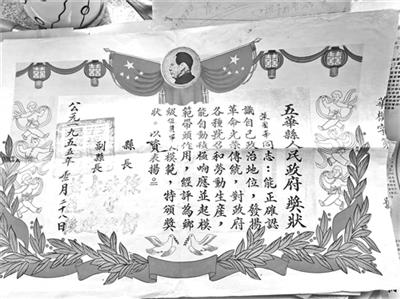 五華縣人民政府 獎狀
同志：能正確認
識自己政治地位，發揚
革命光榮傳統，對政府
各種號召和勞動生產，
能自動積極響應並起模
範帶頭作用，經評為鄉
級模範，特頒獎
狀，以資表揚
縣長
副縣長
公元一九五五年月二十八日